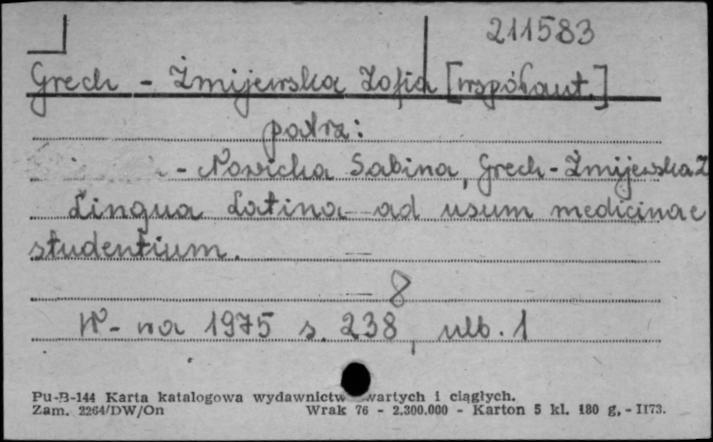 211583
Grech - Żmijewska Zofia [współaut.]
patrz:
- Nowicka Sabina, Grech-Żmijewska Z
Lingua Latina ad usum medicinae
studentium.
8
W-wa 1975 s. 238, nlb. 1
Pu-B-144 Karta katalogowa wydawnictw zwartych i ciągłych.
Zam. 2264/DW/On Wrak 76 - 2.300.000 - Karton 5 kl. 180 g. - II73.